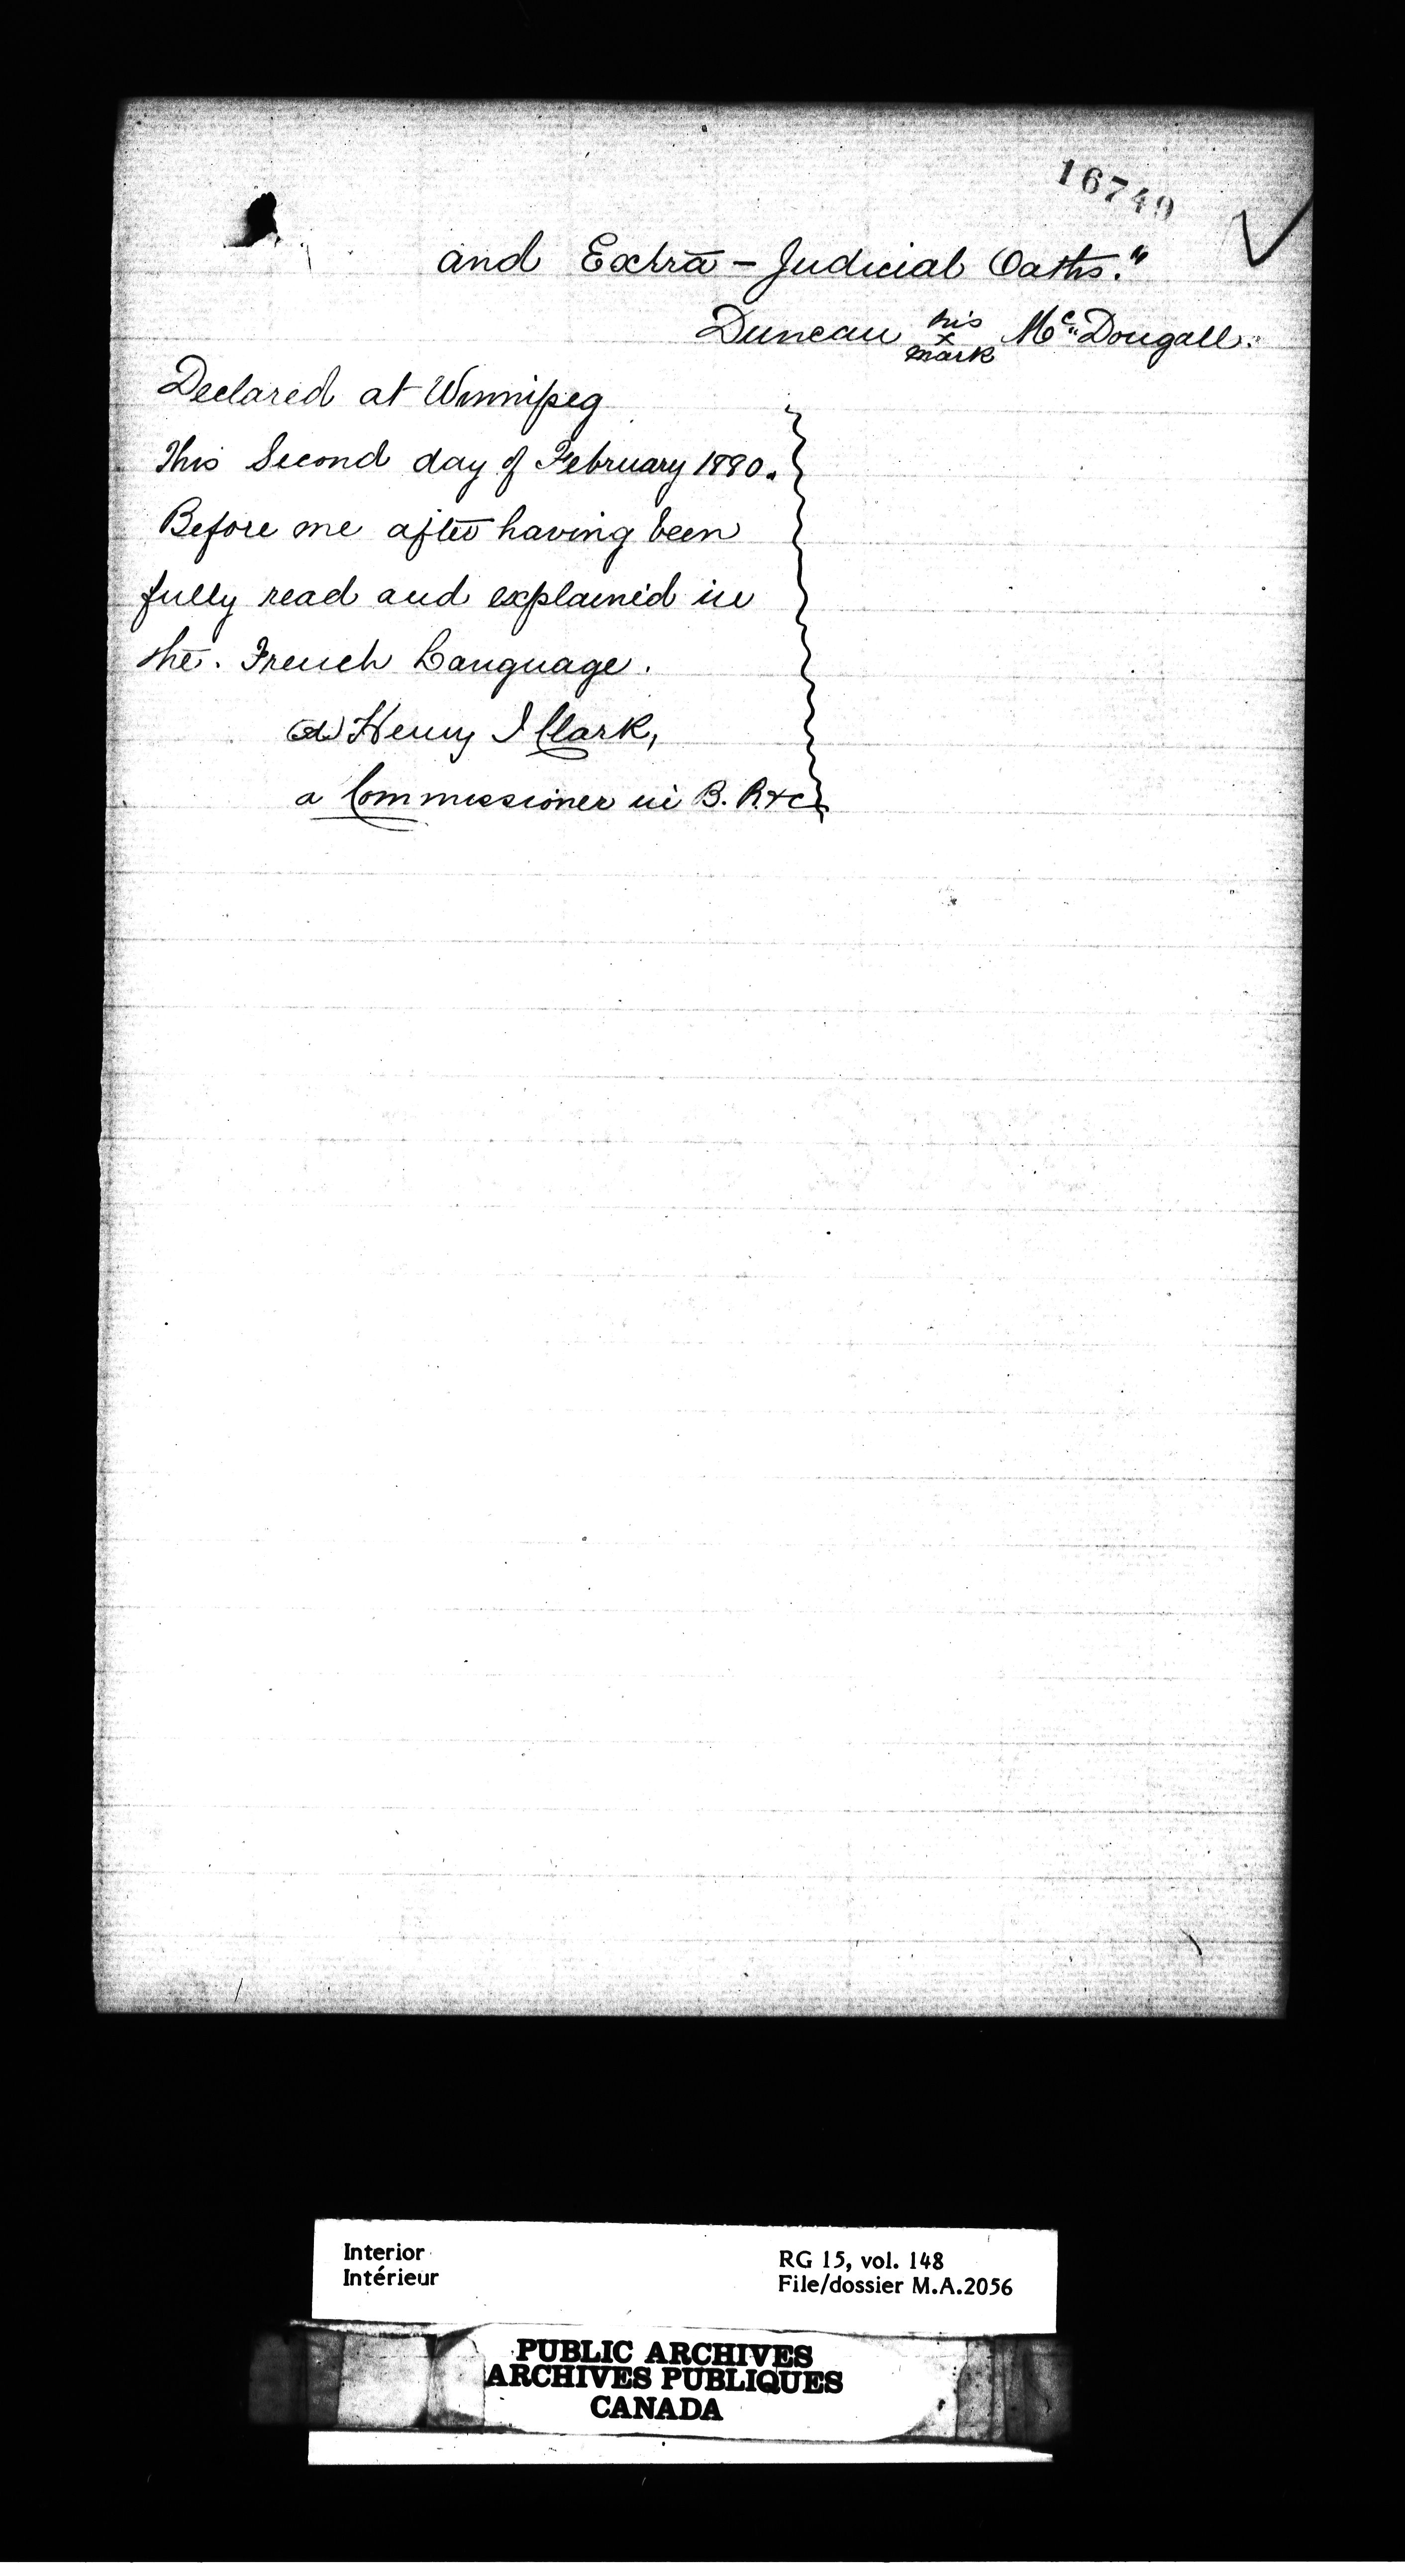 16740
and Extra - Judicial Oaths."
Duncan his x mark Mc Dougall.
Declared at Winnipeg
This Second day of February 1880.
Before me after having been
fully read and explained in
the. French Language.
Henry I Clark,
a Commissioner in B. R. &c
Interior
Intérieur
RG 15, vol. 148
File/dossier M.A.2056
PUBLIC ARCHIVES
ARCHIVES PUBLIQUES
CANADA